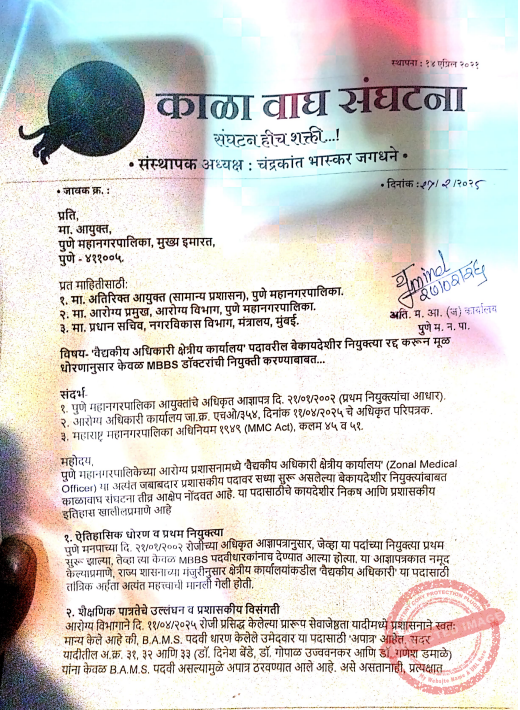 स्थापना : १४ एप्रिल २०२१
काळा वाघ संघटना
संघटन हीच शक्ती...!
• संस्थापक अध्यक्ष : चंद्रकांत भास्कर जगधने •
• जावक क्र. :
• दिनांक : /२/२०२६
प्रति,
मा. आयुक्त,
पुणे महानगरपालिका, मुख्य इमारत,
पुणे - ४११००५.
प्रत माहितीसाठी:
१. मा. अतिरिक्त आयुक्त (सामान्य प्रशासन), पुणे महानगरपालिका.
२. मा. आरोग्य प्रमुख, आरोग्य विभाग, पुणे महानगरपालिका.
३. मा. प्रधान सचिव, नगरविकास विभाग, मंत्रालय, मुंबई.
अति. म. आ. (ज) कार्यालय
पुणे म. न. पा.
विषय- 'वैद्यकीय अधिकारी क्षेत्रीय कार्यालय' पदावरील बेकायदेशीर नियुक्त्या रद्द करून मूळ
धोरणानुसार केवळ MBBS डॉक्टरांची नियुक्ती करण्याबाबत...
संदर्भ-
१. पुणे महानगरपालिका आयुक्तांचे अधिकृत आज्ञापत्र दि. २१/०१/२००२ (प्रथम नियुक्त्यांचा आधार).
२. आरोग्य अधिकारी कार्यालय जा.क्र. एचओ/३५४, दिनांक ११/०४/२०२५ चे अधिकृत परिपत्रक.
३. महाराष्ट्र महानगरपालिका अधिनियम १९४९ (MMC Act), कलम ४५ व ५१.
महोदय,
पुणे महानगरपालिकेच्या आरोग्य प्रशासनामध्ये 'वैद्यकीय अधिकारी क्षेत्रीय कार्यालय' (Zonal Medical
Officer) या अत्यंत जबाबदार प्रशासकीय पदावर सध्या सुरू असलेल्या बेकायदेशीर नियुक्त्यांबाबत
काळावाघ संघटना तीव्र आक्षेप नोंदवत आहे. या पदासाठीचे कायदेशीर निकष आणि प्रशासकीय
इतिहास खालीलप्रमाणे आहे
१. ऐतिहासिक धोरण व प्रथम नियुक्त्या
पुणे मनपाच्या दि. २१/०१/२००२ रोजीच्या अधिकृत आज्ञापत्रानुसार, जेव्हा या पदांच्या नियुक्त्या प्रथम
सुरू झाल्या, तेव्हा त्या केवळ MBBS पदवीधारकांनाच देण्यात आल्या होत्या. या आज्ञापत्रकात नमूद
केल्याप्रमाणे, राज्य शासनाच्या मंजुरीनुसार क्षेत्रीय कार्यालयांकडील 'वैद्यकीय अधिकारी' या पदासाठी
तांत्रिक अर्हता अत्यंत महत्त्वाची मानली गेली होती.
२. शैक्षणिक पात्रतेचे उल्लंघन व प्रशासकीय विसंगती
आरोग्य विभागाने दि. ११/०४/२०२५ रोजी प्रसिद्ध केलेल्या प्रारूप सेवाजेष्ठता यादीमध्ये प्रशासनाने स्वतः
मान्य केले आहे की, B.A.M.S. पदवी धारण केलेले उमेदवार या पदासाठी 'अपात्र' आहेत. सदर
यादीतील अ.क्र. ३१, ३२ आणि ३३ (डॉ. दिनेश बेंडे, डॉ. गोपाळ उज्ववनकर आणि डॉ. गणेश डमाळे)
यांना केवळ B.A.M.S. पदवी असल्यामुळे अपात्र ठरवण्यात आले आहे. असे असतानाही, प्रत्यक्षात